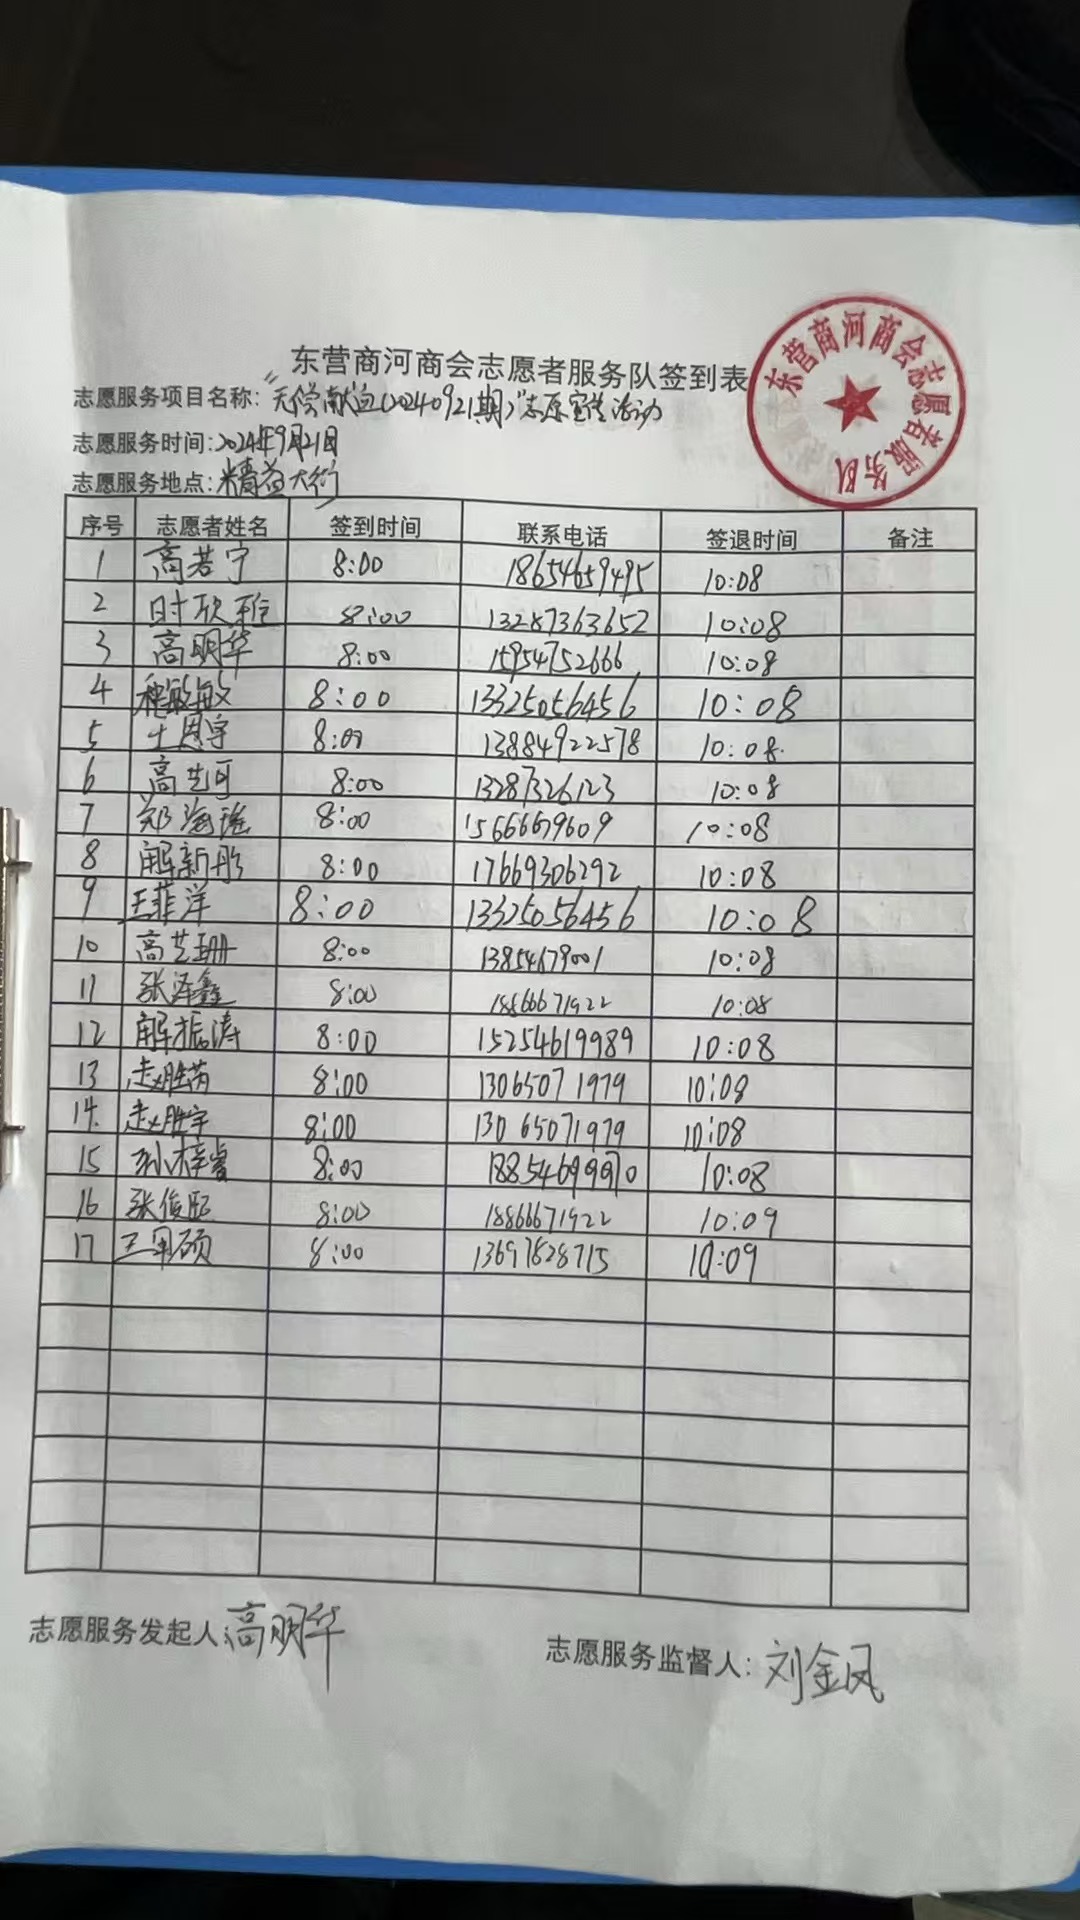 东营商河商会志愿者服务队签到表
东营商河商会志愿者服务队
志愿服务项目名称:“无偿献血(20240921期)”志愿宣传活动
志愿服务时间:2024年9月21日
志愿服务地点:精益大街
序号 志愿者姓名 签到时间 联系电话 签退时间 备注
1 高若宁 8:00 18654659495 10:08
2 时欣雅 8:00 13287363652 10:08
3 高明华 8:00 15954752666 10:08
4 程敏敏 8:00 13325056456 10:08
5 王恩宇 8:00 13884922578 10:08
6 高艺可 8:00 13287326123 10:08
7 郑海瑶 8:00 15666679609 10:08
8 解新彤 8:00 17669306292 10:08
9 王菲洋 8:00 13325056456 10:08
10 高艺珊 8:00 13854679001 10:08
11 张泽鑫 8:00 18866671922 10:08
12 解振涛 8:00 15254619989 10:08
13 赵胜芮 8:00 13065071979 10:08
14. 赵胜宇 8:00 13065071979 10:08
15 孙梓睿 8:00 18854699970 10:08
16 张俊熙 8:00 18866671922 10:09
17 王军硕 8:00 13697828715 10:09
志愿服务发起人:高明华
志愿服务监督人:刘金凤